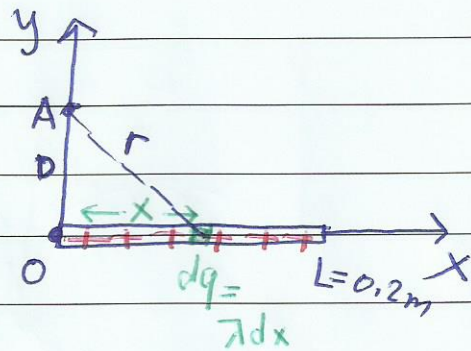 y
A
r
D
x
O
dq =
λdx
L=0,2m
X